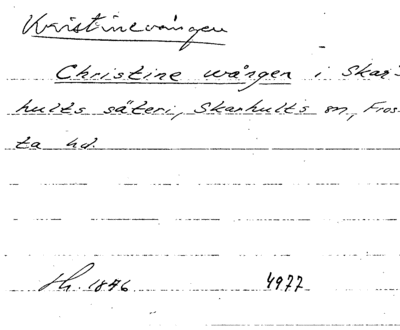 Kristinevången
Christine wången i Skar-
hults säteri, Skarhults sn, Fros-
ta hd.
Hh. 1846 4977